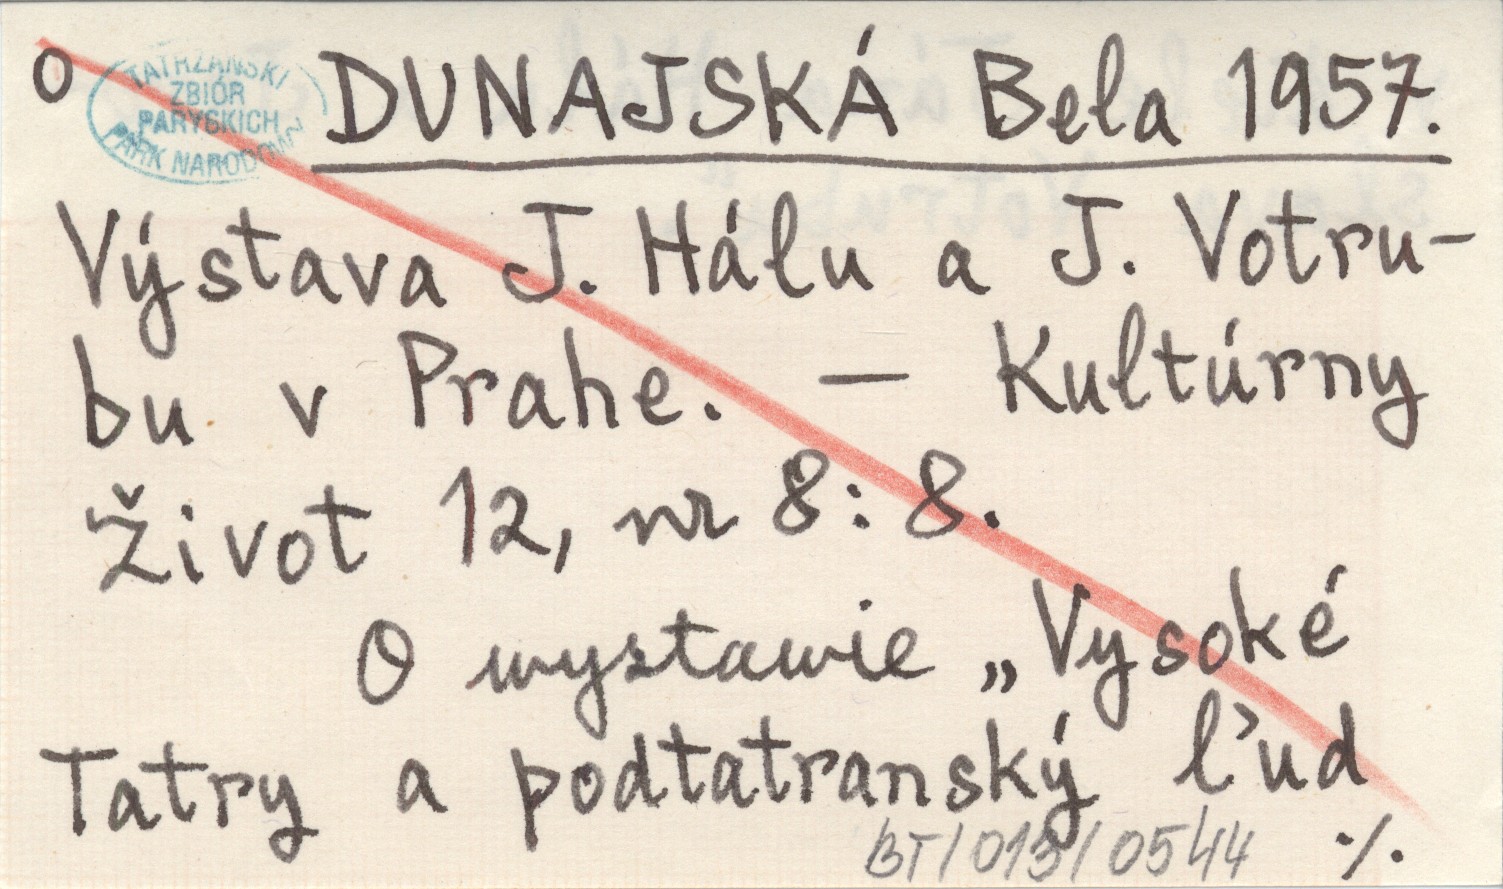 O
TATRZAŃSKI
ZBIÓR
PARYSKICH
PARK NARODOWY
DUNAJSKÁ Bela 1957.
Výstava J. Hálu a J. Votru-
bu v Prahe. — Kultúrny
život 12, nr 8: 8.
O wystawie „Vysoké
Tatry a podtatranský ľud
BT/013/0544 ·/.